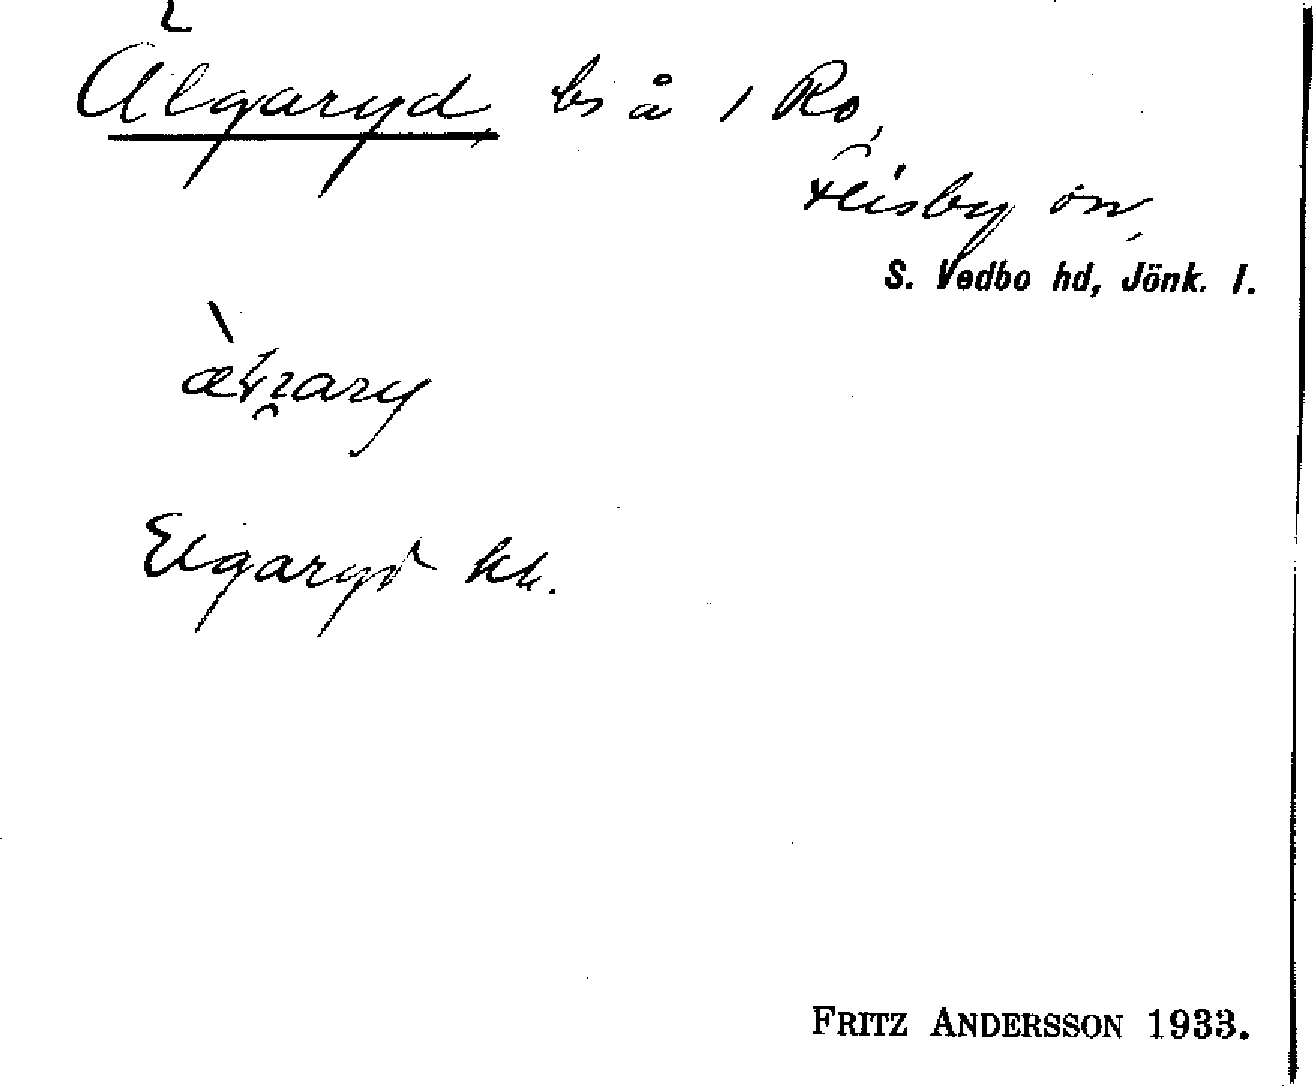 Älgaryd, bs å 1 Ro,
Flisby sn,
S. Vedbo hd, Jönk. l.
Elgaryd kk.
FRITZ ANDERSSON 1933.